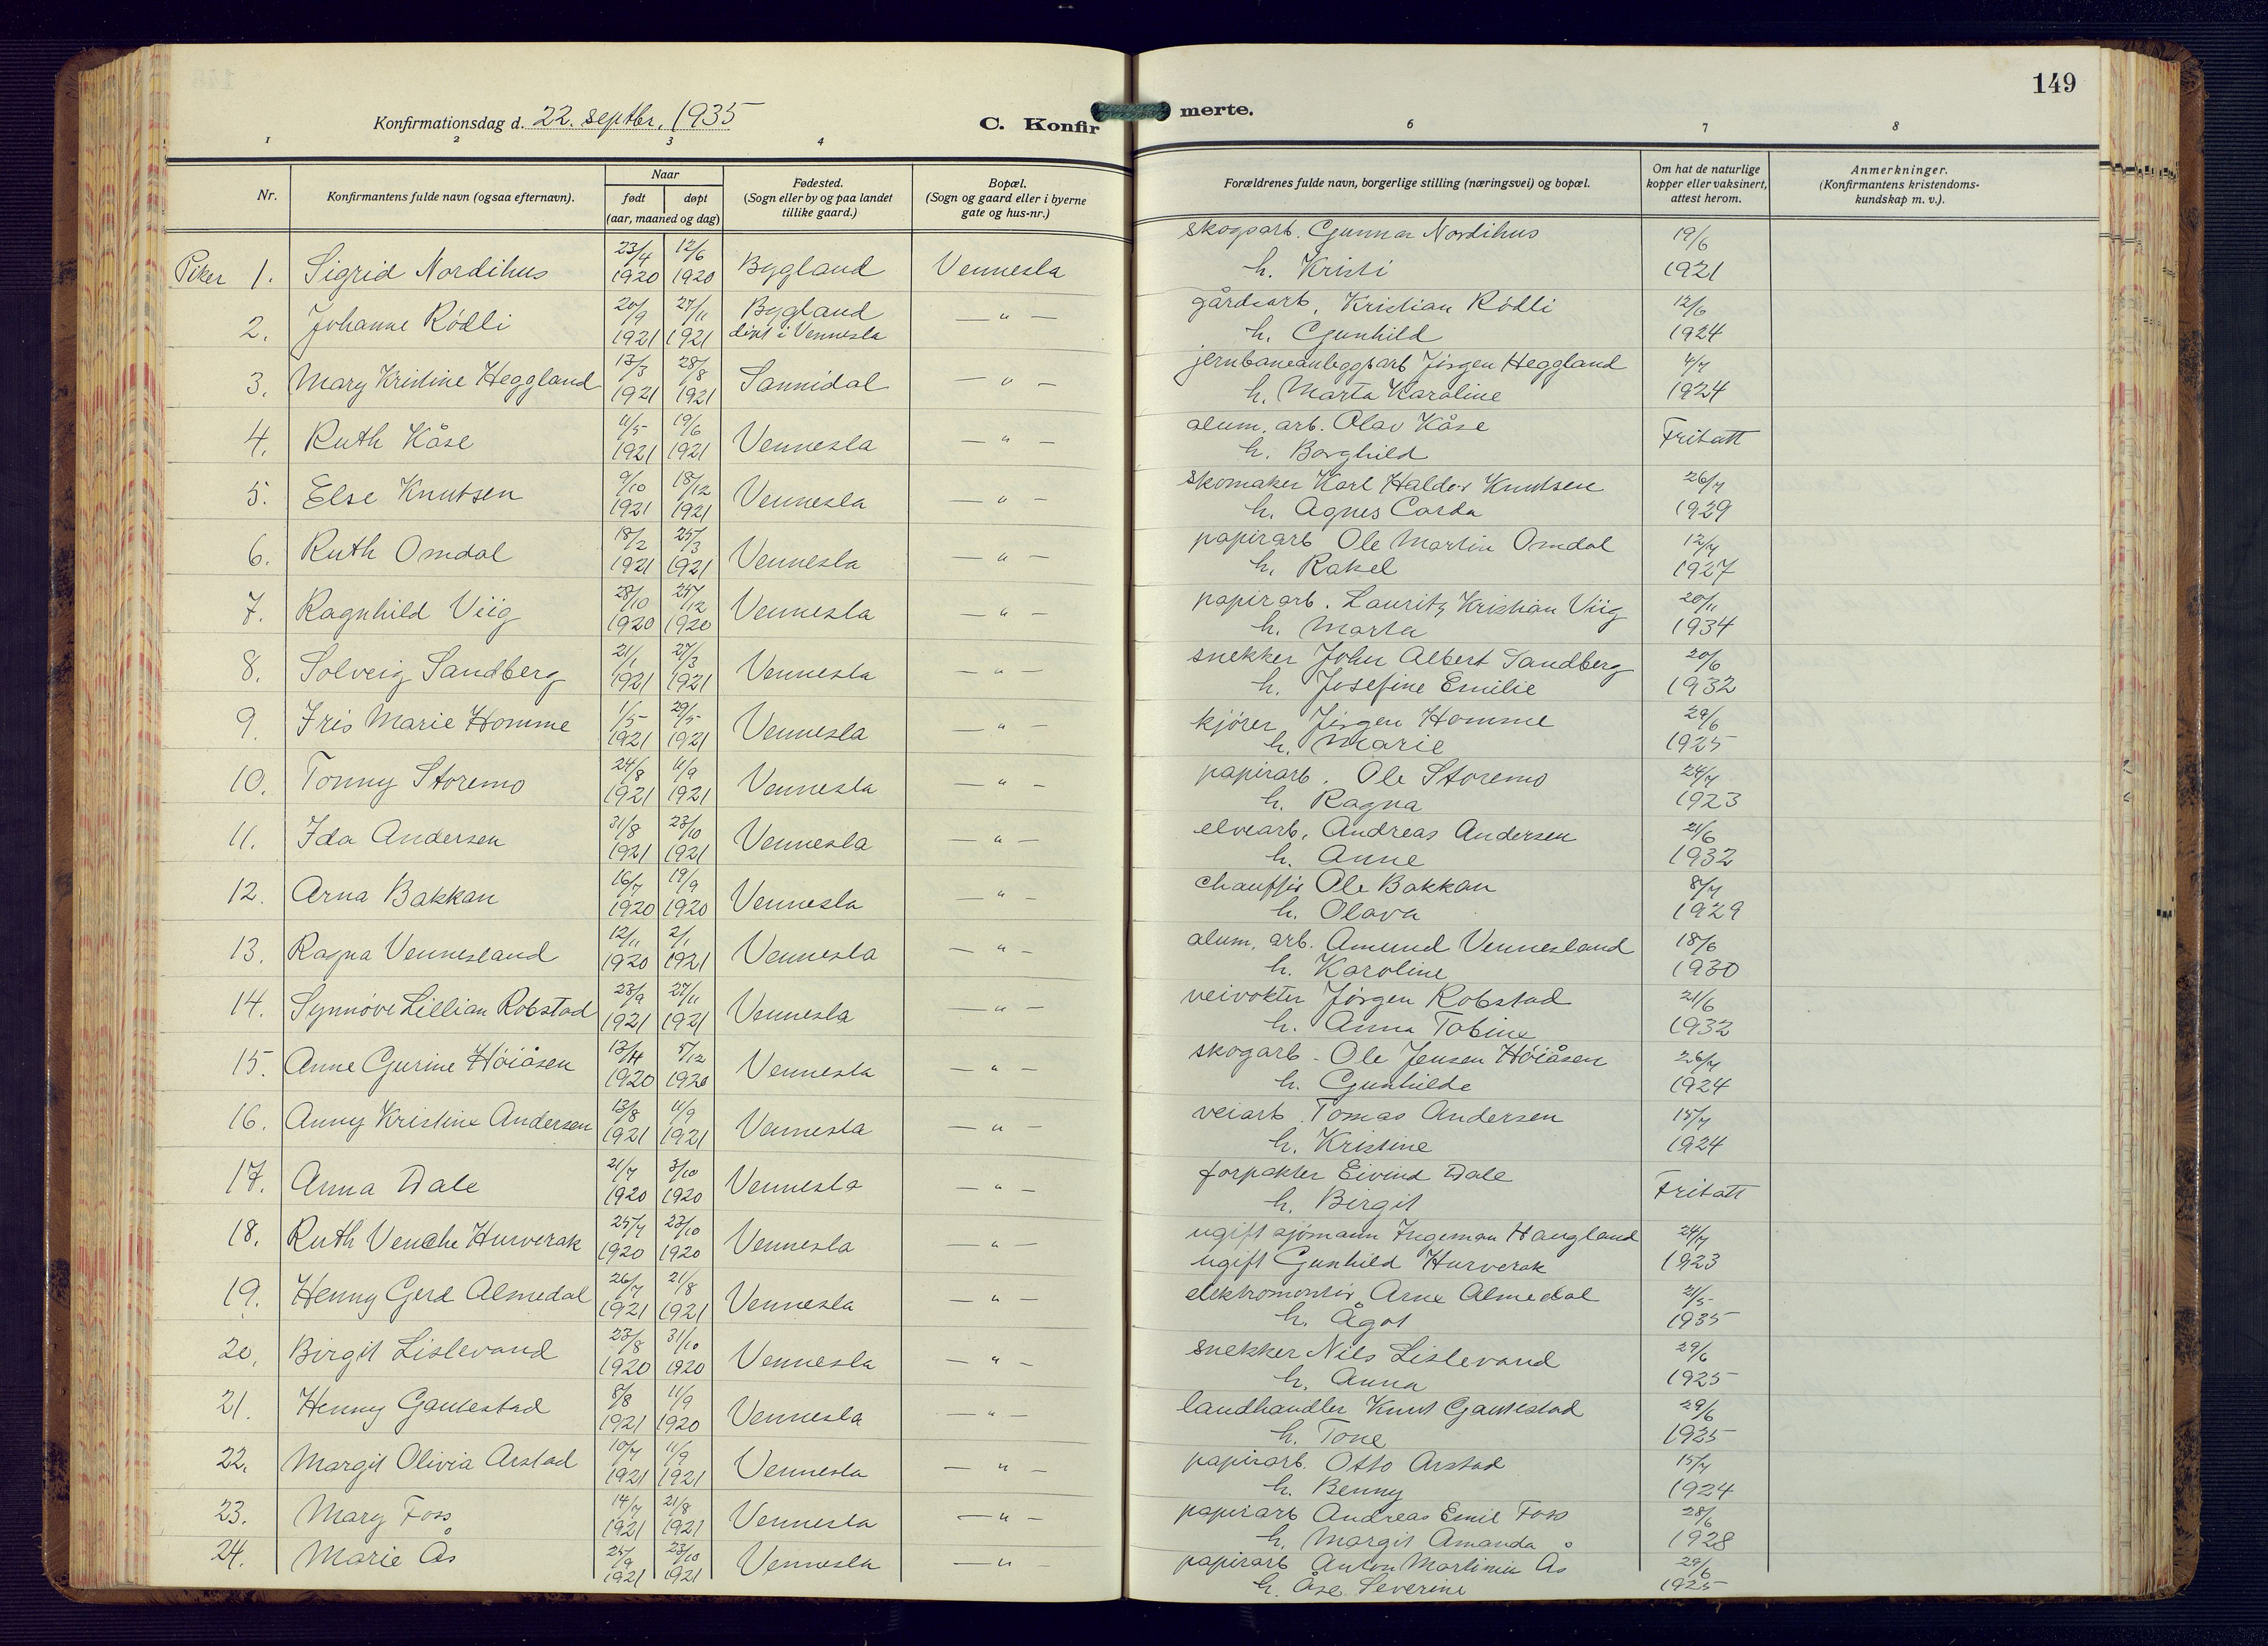 149
Konfirmationsdag d. 22. septbr. 1935
C. Konfirmerte.
1 2 3 4 6 7 8
Nr. Konfirmantens fulde navn (ogsaa efternavn). Naar født døpt (aar, maaned og dag) Fødested. (Sogn eller by og paa landet tillike gaard.) Bopæl. (Sogn og gaard eller i byerne gate og hus-nr.) Forældrenes fulde navn, borgerlige stilling (næringsvei) og bopæl. Om hat de naturlige kopper eller vaksinert, attest herom. Anmerkninger. (Konfirmantens kristendoms-kundskap m. v.).
Piker 1. Sigrid Nordihus 23/4 1920 12/6 1920 Bygland Vennesla skogsarb. Gunnar Nordihus 19/6
h. Kristi 1921
2. Johanne Rødli 20/9 1921 27/11 1921 Bygland døpt i Vennesla — " — gårdsarb. Kristian Rødli 12/6
h. Gunhild 1924
3. Mary Kristine Heggland 13/3 1921 28/8 1921 Sannidal — " — jernbaneanleggsarb Jørgen Heggland 4/7
h. Marta Karoline 1924
4. Ruth Kåse 11/5 1921 19/6 1921 Vennesla — " — alum. arb. Olav Kåse Fritatt
h. Borghild
5. Else Knutsen 9/10 1921 18/12 1921 Vennesla — " — skomaker Karl Haldor Knutsen 26/7
h. Agnes Corda 1929
6. Ruth Omdal 18/2 1921 25/3 1921 Vennesla — " — papirarb Ole Martin Omdal 12/7
h. Rakel 1927
7. Ragnhild Viig 28/10 1920 25/12 1920 Vennesla — " — papirarb. Lauritz Kristian Viig 20/11
h. Marta 1934
8. Solveig Sandberg 21/1 1921 27/3 1921 Vennesla — " — snekker John Albert Sandberg 20/6
h. Josefine Emilie 1932
9. Iris Marie Homme 1/5 1921 29/5 1921 Vennesla — " — kjører Jørgen Homme 29/6
h. Marie 1925
10. Tonny Storemo 24/8 1921 11/9 1921 Vennesla — " — papirarb. Ole Storemo 24/7
h. Ragna 1923
11. Ida Andersen 31/8 1921 23/10 1921 Vennesla — " — elvearb. Andreas Andersen 21/6
h. Anne 1932
12. Arna Bakkan 16/7 1920 19/9 1920 Vennesla — " — chauffør Ole Bakkan 8/7
h. Olava 1929
13. Ragna Vennesland 12/11 1920 2/1 1921 Vennesla — " — alum. arb. Amund Vennesland 18/6
h. Karoline 1930
14. Synnøve Lillian Robstad 23/9 1921 27/11 1921 Vennesla — " — veivokter Jørgen Robstad 21/6
h. Anna Tobine 1932
15. Anne Gurine Høiåsen 1920 5/12 1920 Vennesla — " — skogarb - Ole Jensen Høiåsen 26/7
h. Gunhilde 1924
16. Anny Kristine Andersen 13/8 1921 11/9 1921 Vennesla — " — veiarb. Tomas Andersen 15/7
h. Kristine 1924
17. Anna Dale 21/7 1920 3/10 1920 Vennesla — " — forpakter Eivind Dale Fritatt
h. Birgit
18. Ruth Venche Hurverak 25/7 1920 23/10 1920 Vennesla — " — ugift sjømann Ingeman Haugland 24/7
ugift Gunhild Hurverak 1923
19. Henny Gerd Almedal 26/7 1921 21/8 1921 Vennesla — " — elektromontør Arne Almedal 21/5
h. Ågot 1935
20. Birgit Lislevand 23/8 1920 31/10 1920 Vennesla — " — snekker Nils Lislevand 29/6
h. Anna 1925
21. Henny Gautestad 8/8 1921 11/9 1920 Vennesla — " — landhandler Knut Gautestad 29/6
h. Tone 1925
22. Margit Olivia Arstad 10/7 1921 11/9 1921 Vennesla — " — papirarb. Otto Arstad 15/7
h. Benny 1924
23. Mary Foss 14/7 1921 21/8 1921 Vennesla — " — papirarb Andreas Emil Foss 28/6
h. Margit Amanda 1928
24. Marie Ås 25/9 1921 23/10 1921 Vennesla — " — papirarb Anton Martinius Ås 29/6
h. Åse Severine 1925